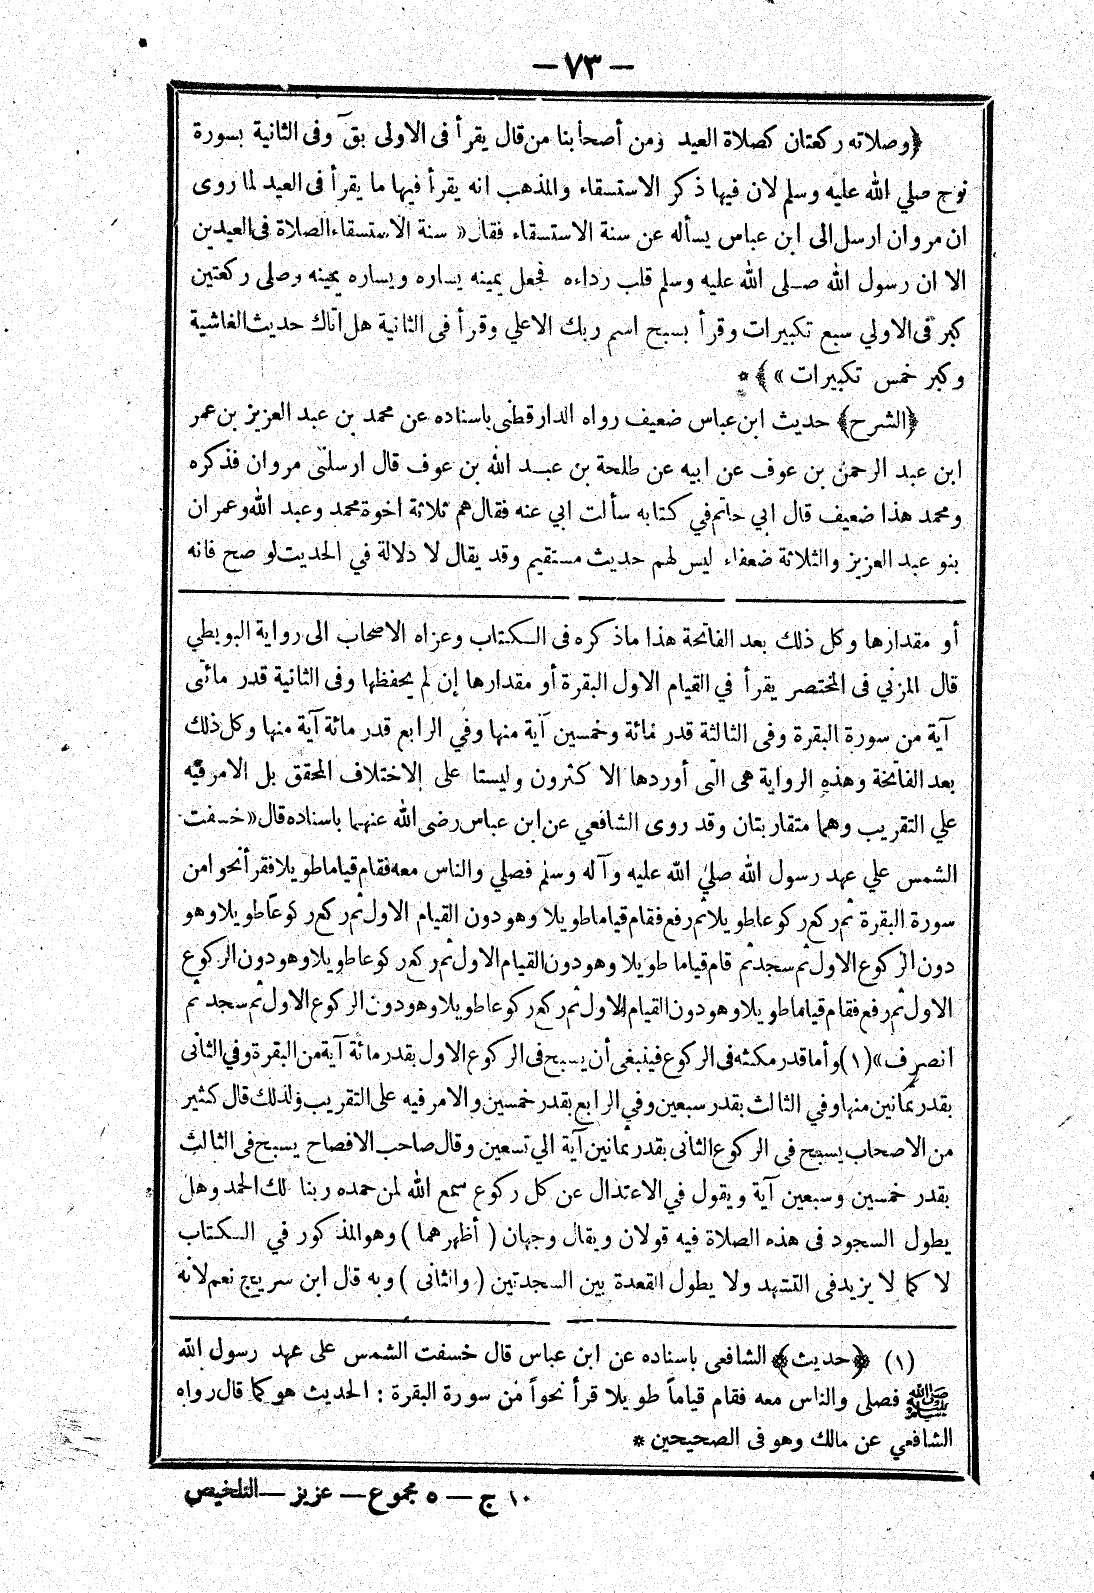 — ٧٣ —
﴿وصلاته ركعتان كصلاة العيد ومن أصحابنا من قال يقرأ فى الاولى بقٓ وفى الثانية بسورة
نوح صلي الله عليه وسلم لان فيها ذكر الاستسقاء والمذهب انه يقرأ فيها ما يقرأ فى العيد لما روى
ان مروان ارسل الى ابن عباس يسأله عن سنة الاستسقاء فقال « سنة الاستسقاء الصلاة فى العيدين
الا ان رسول الله صلى الله عليه وسلم قلب رداءه فجعل يمينه يساره ويساره يمينه وصلى ركعتين
كبر فى الاولي سبع تكبيرات وقرأ بسبح اسم ربك الاعلي وقرأ فى الثانية هل اتاك حديث الغاشية
وكبر خمس تكبيرات » ﴾ *
﴿الشرح﴾ حديث ابن عباس ضعيف رواه الدارقطنى باسناده عن محمد بن عبد العزيز بن عمر
ابن عبد الرحمن بن عوف عن ابيه عن طلحة بن عبد الله بن عوف قال ارسلنى مروان فذكره
ومحمد هذا ضعيف قال ابي حاتم في كتابه سألت ابي عنه فقال هم ثلاثة اخوة محمد وعبد الله وعمران
بنو عبد العزيز والثلاثة ضعفاء ليس لهم حديث مستقيم وقد يقال لا دلالة في الحديث لو صح فانه
أو مقدارها وكل ذلك بعد الفاتحة هذا ماذكره فى الكتاب وعزاه الاصحاب الى رواية البويطي
قال المزني فى المختصر يقرأ في القيام الاول البقرة أو مقدارها إن لم يحفظها وفى الثانية قدر مائتى
آية من سورة البقرة وفى الثالثة قدر مائة وخمسين آية منها وفي الرابع قدر مائة آية منها وكل ذلك
بعد الفاتحة وهذه الرواية هى التى أوردها الاكثرون وليستا على الاختلاف المحقق بل الامر فيه
علي التقريب وهما متقاربتان وقد روى الشافعي عن ابن عباس رضى الله عنهما باسناده قال « خسفت
الشمس علي عهد رسول الله صلي الله عليه وآله وسلم فصلي والناس معه فقام قياما طويلا فقرأ نحوا من
سورة البقرة ثم ركع ركوعا طويلا ثم رفع فقام قياما طويلا وهو دون القيام الاول ثم ركع ركوعا طويلا وهو
دون الركوع الاول ثم سجد ثم قام قياما طويلا وهو دون القيام الاول ثم ركع ركوعا طويلا وهو دون الركوع
الاول ثم رفع فقام قياما طويلا وهو دون القيام الاول ثم ركع ركوعا طويلا وهو دون الركوع الاول ثم سجد ثم
انصرف » (١) وأما قدر مكثه فى الركوع فينبغى أن يسبح فى الركوع الاول بقدر مائة آية من البقرة وفي الثانى
بقدر ثمانين منها وفي الثالث بقدر سبعين وفي الرابع بقدر خمسين والامر فيه على التقريب ولذلك قال كثير
من الاصحاب يسبح في الركوع الثانى بقدر ثمانين آية الي تسعين وقال صاحب الافصاح يسبح فى الثالث
بقدر خمسين وسبعين آية ويقول في الاعتدال عن كل ركوع سمع الله لمن حمده ربنا لك الحمد وهل
يطول السجود فى هذه الصلاة فيه قولان ويقال وجهان ( أظهرهما ) وهو المذكور في الكتاب
لا كما لا يزيد فى التشهد ولا يطول القعدة بين السجدتين ( والثانى ) وبه قال ابن سريج نعم لانه
(١) ﴿حديث﴾ الشافعى باسناده عن ابن عباس قال خسفت الشمس على عهد رسول الله
ﷺ فصلى والناس معه فقام قياماً طويلا قرأ نحواً من سورة البقرة : الحديث هو كما قال رواه
الشافعي عن مالك وهو فى الصحيحين *
١٠ ج — ٥ مجموع — عزيز — التلخيص